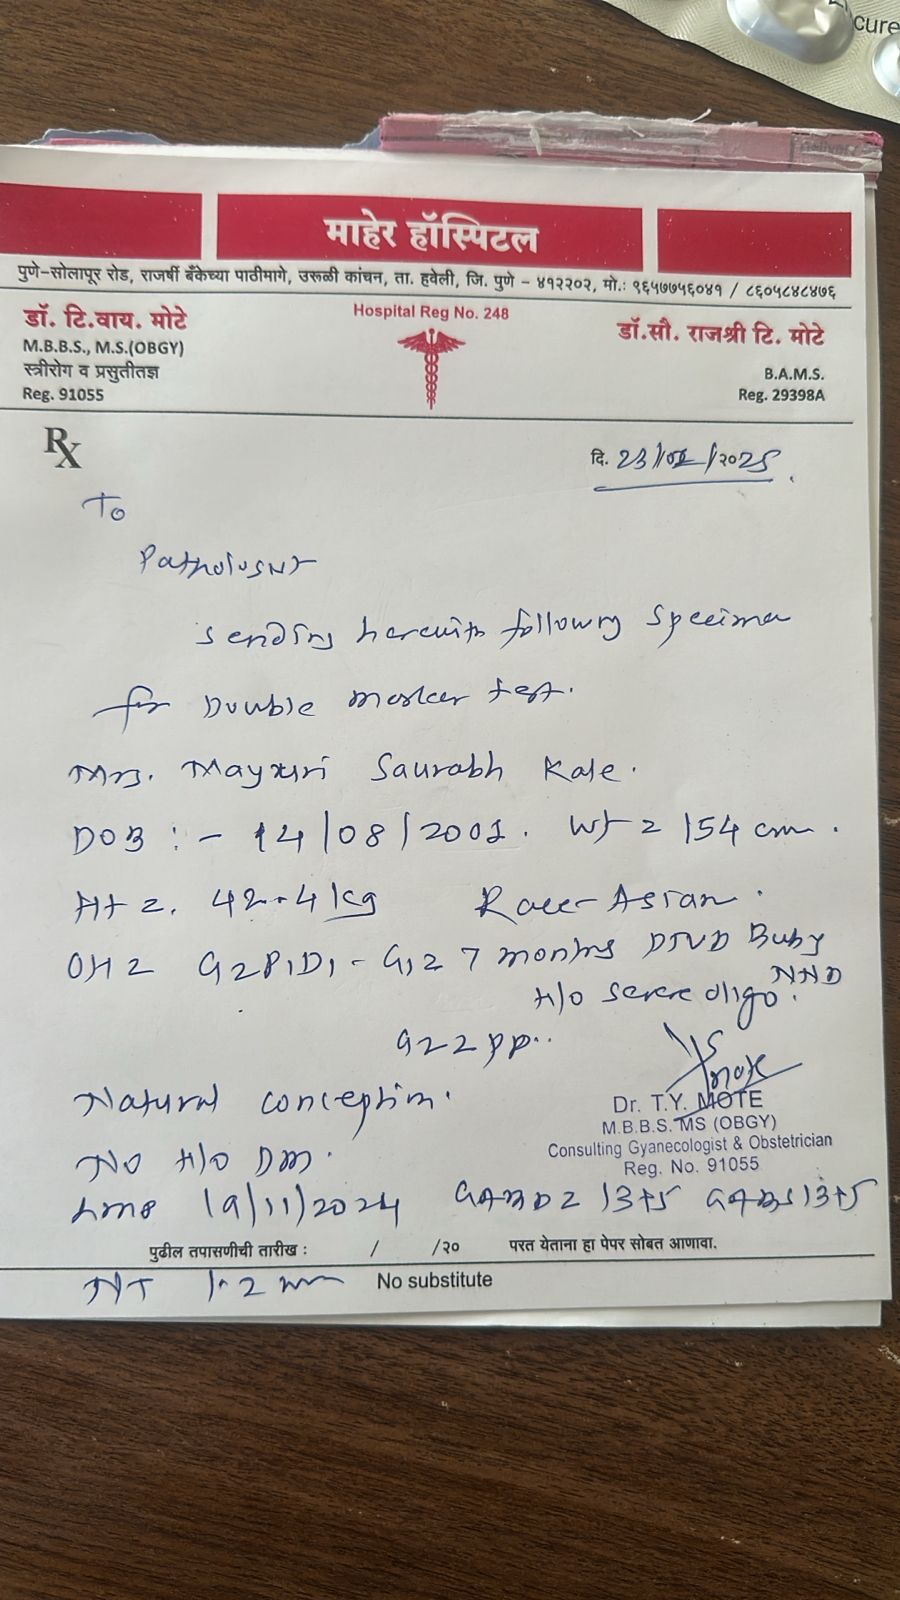 cure
माहेर हॉस्पिटल
पुणे-सोलापूर रोड, राजर्षी बँकेच्या पाठीमागे, उरूळी कांचन, ता. हवेली, जि. पुणे - ४१२२०२, मो.: ९६५७७५६०४१ / ८६०५८४८४७६
डॉ. टि.वाय. मोटे
M.B.B.S., M.S.(OBGY)
स्त्रीरोग व प्रसुतीतज्ञ
Reg. 91055
Hospital Reg No. 248
डॉ.सौ. राजश्री टि. मोटे
B.A.M.S.
Reg. 29398A
Rx
दि. 23/02/२०25
To
Pathologist
sending herewith following specimen
for Double marker test.
Mrs. Mayuri Saurabh Kale.
DOB :- 14/08/2001. Wt = 154 cm.
Ht = 42.4 kg Race - Asian.
OH = G2P1D1 - G1 = 7 months PTVD Baby NND
H/o severe oligo.
G2 = pp..
Natural conception.
Dr. T.Y. MOTE
M.B.B.S. MS (OBGY)
Consulting Gyanecologist & Obstetrician
Reg. No. 91055
No H/o DM.
LMP 19/11/2024 13+5 13+5
पुढील तपासणीची तारीख : / /२० परत येताना हा पेपर सोबत आणावा.
NT 1.2 mm No substitute